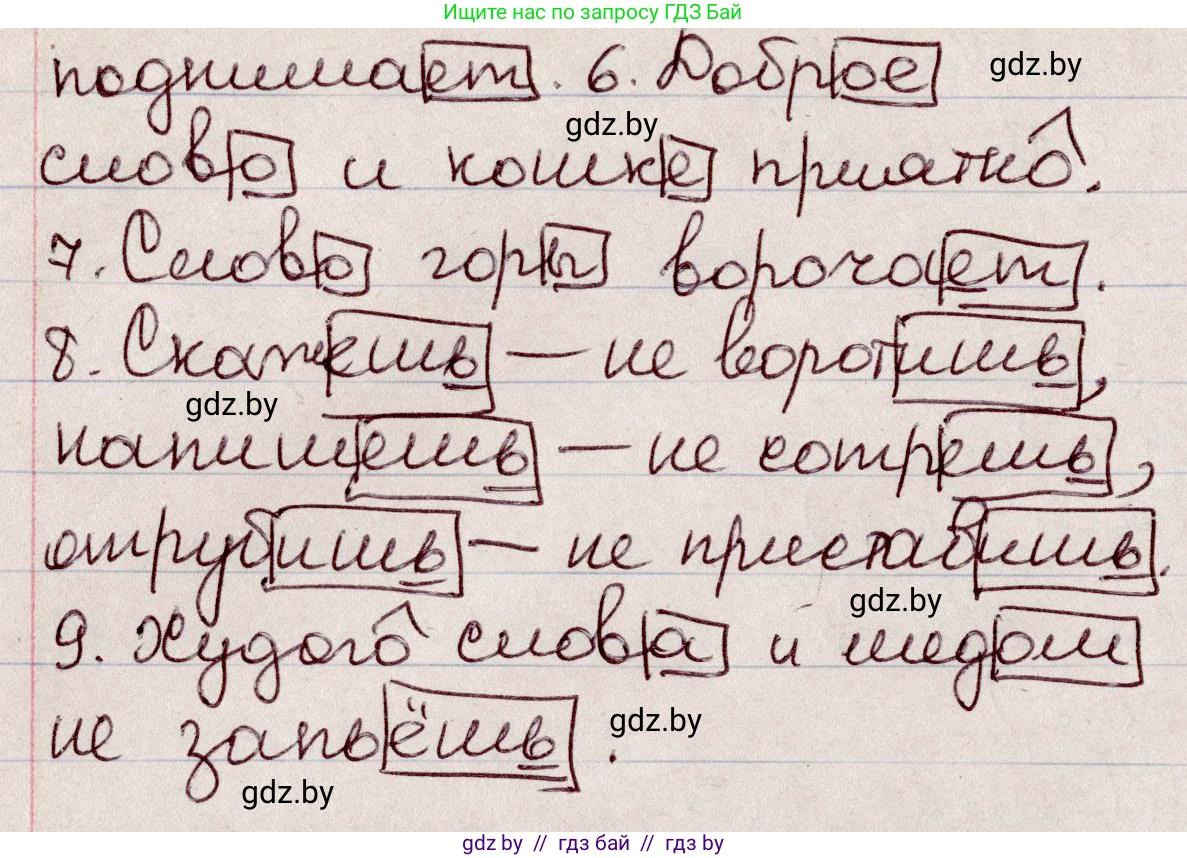 Ищите нас по запросу ГДЗ Бай
поднимает. 6. Доброе
gdz.by
gdz.by
слово и кошке приятно.
7. Слово горы ворочает.
8. Скажешь — не воротишь,
gdz.by
напишешь — не сотрешь,
отрубишь — не приставишь.
gdz.by
9. Худого слова и медом
не запьёшь.
gdz.by
gdz.by
gdz.by // гдз бай // гдз by